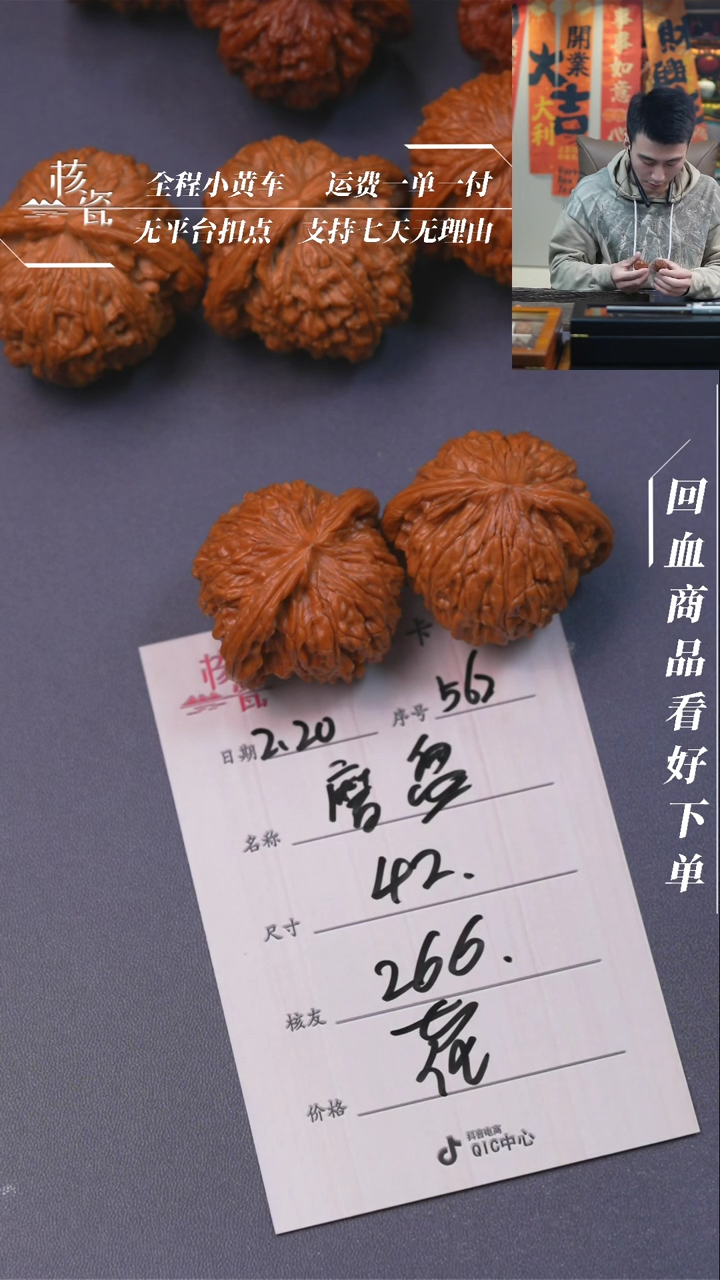 核瓷
全程小黄车 运费一单一付
无平台扣点 支持七天无理由
開業
大吉
大利
事事如意
财
回血商品看好下单
卡
核瓷
日期 2.20 序号 562
名称 磨盘
尺寸 42.
核友 266.
价格 花
抖音电商
QIC中心